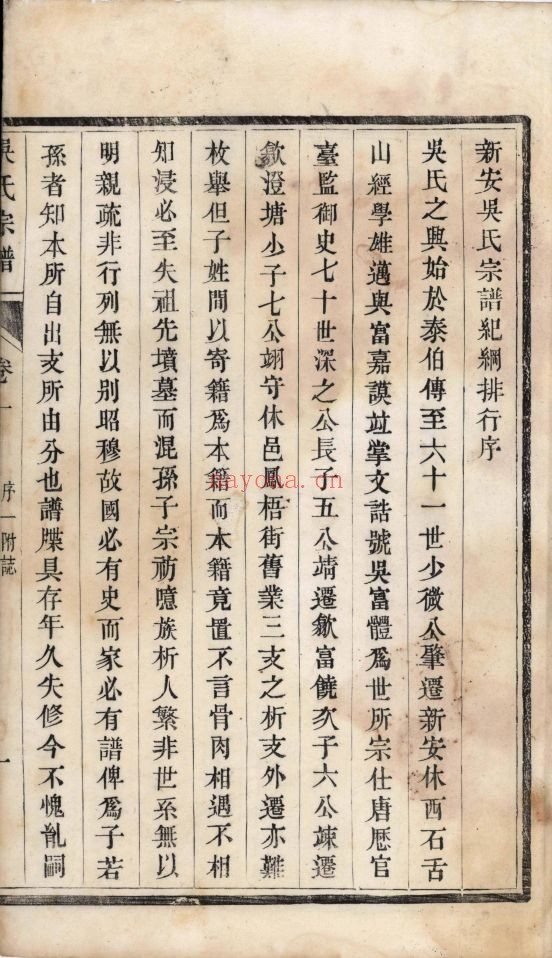 新安吳氏宗譜紀綱排行序
吳氏之興始於泰伯傳至六十一世少微公肇遷新安休西石舌
山經學雄邁與富嘉謨竝掌文誥號吳富體爲世所宗仕唐歷官
臺監御史七十世深之公長子五公靖遷歙富饒次子六公竦遷
歙澄塘少子七公翊守休邑鳳梧街舊業三支之析支外遷亦難
枚舉但子姓間以寄籍爲本籍而本籍竟置不言骨肉相遇不相
知浸必至失祖先墳墓而混孫子宗祊噫族析人繁非世系無以
明親疏非行列無以别昭穆故國必有史而家必有譜俾爲子若
孫者知本所自出支所由分也譜牒具存年久失修今不愧亂嗣
吳氏宗譜 卷一 序一附誌 一
nayona.cn